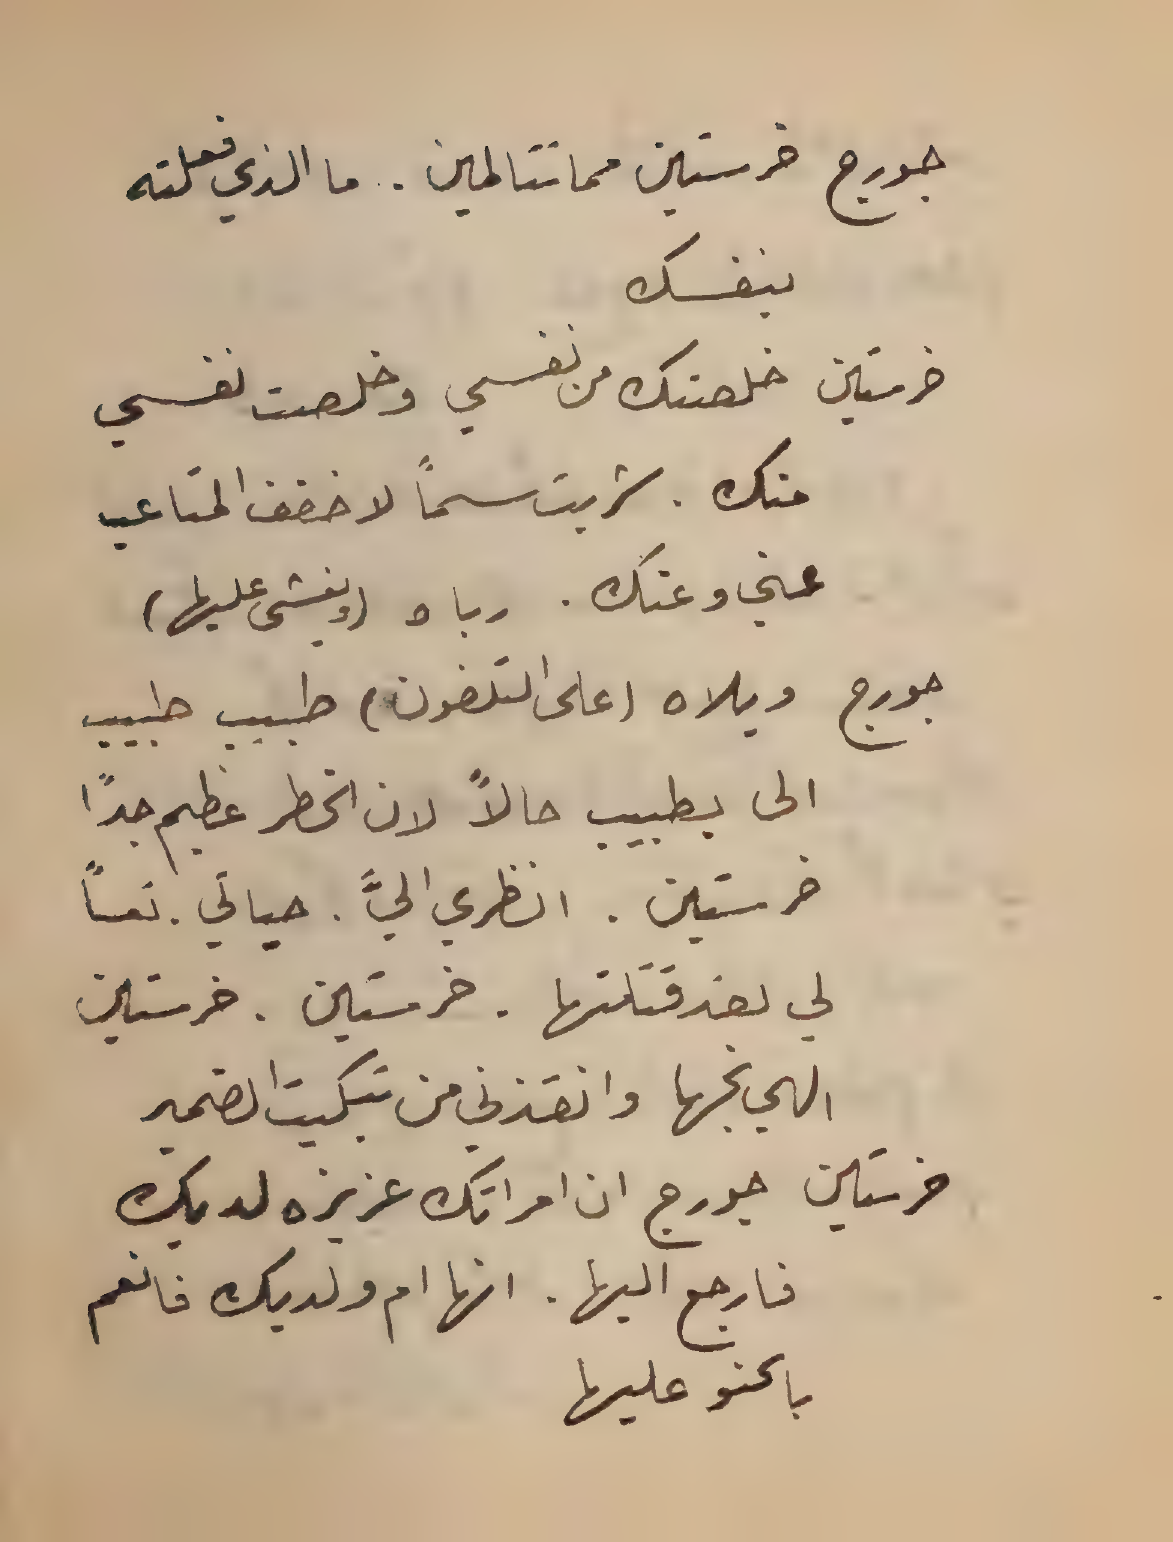 جورج خرستين مما تتالمين . ما الذي فعلته
بنفسك
خرستين خلصتك من نفسي وخلصت نفسي
منك . شربت سماً لاخفف المتاعب
عني وعنك . رباه (ويغشى عليها)
جورج ويلاه (على التلفون) طبيب طبيب
الى بطبيب حالاً لان الخطر عظيم جداً
خرستين . انظري اليَّ . حياتي . تعساً
لي لقد قتلتها . خرستين . خرستين
الهي نجها وانقذني من تبكيت الضمير
خرستين جورج ان امراتك عزيزه لديك
فارجع اليها . انها ام ولديك فانعم
بالحنو عليها